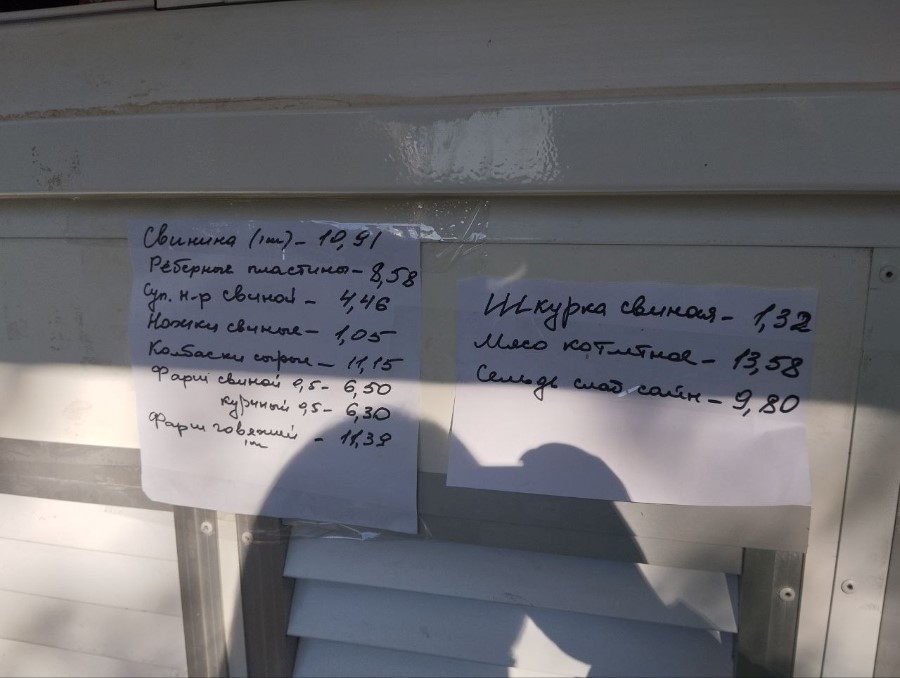 Свинина (1т) - 10,91
Рёберные пластины - 8,58
Суп. н-р свиной - 4,46
Ножки свиные - 1,05
Колбаски сырые - 11,15
Фарш свиной 0,5 - 6,50
куриный 0,5 - 6,30
Фарш говяжий - 11,39
1т
Шкурка свиная - 1,32
Мясо котлтное - 13,58
Сельдь слаб - 9,80